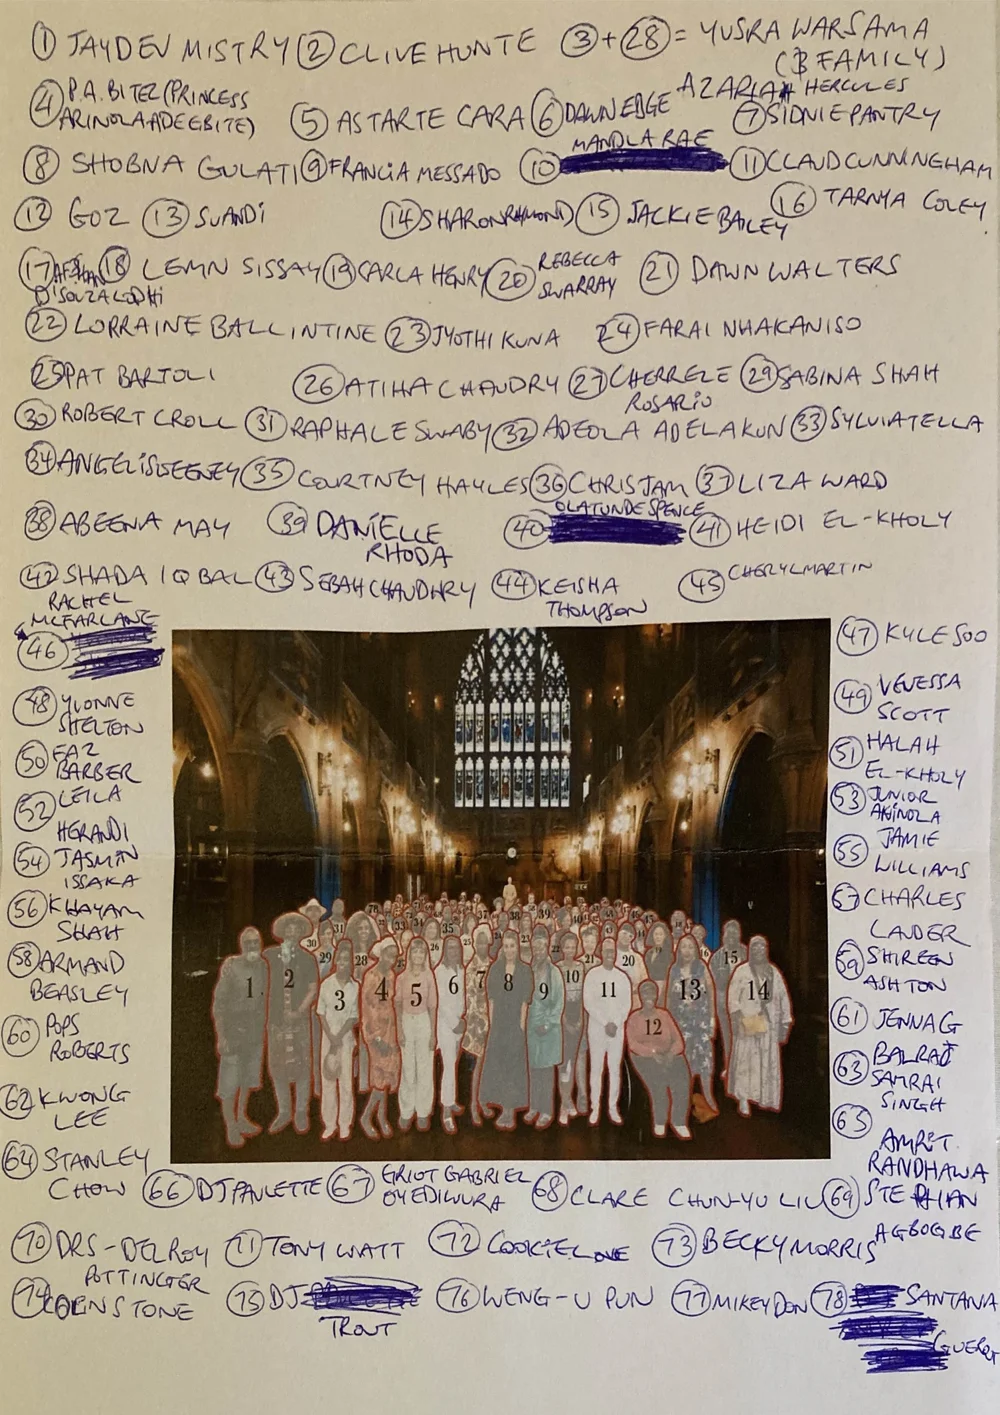 ① JAYDEV MISTRY ② CLIVE HUNTE ③+㉘= YUSRA WARSAMA
(B FAMILY)
④ P.A. BITEZ (PRINCESS
ARINOLA ADEEBITE)
⑤ ASTARTE CARA ⑥ DAWN EDGE AZARIAH HERCULES
⑦ SIDNIE PANTRY
⑧ SHOBNA GULATI ⑨ FRANCIA MESSADO ⑩ MANDLA RAE ⑪ CLAUD CUNNINGHAM
⑫ GOZ ⑬ SUANDI ⑭ SHARON RAYMOND ⑮ JACKIE BAILEY ⑯ TARNYA COLEY
⑰ AFSHAN
D'SOUZA LODHI
⑱ LEMN SISSAY ⑲ CARLA HENRY ⑳ REBECCA
SWARRAY
㉑ DAWN WALTERS
㉒ LORRAINE BALLINTINE ㉓ JYOTHI KUNA ㉔ FARAI NHAKANISO
㉕ PAT BARTOLI ㉖ ATIHA CHAUDRY ㉗ CHERRELE
ROSARIO
㉙ SABINA SHAH
㉚ ROBERT CROLL ㉛ RAPHALE SWABY ㉜ ADEOLA ADELAKUN ㉝ SYLVIA TELLA
㉞ ANGELI SWEENEY ㉟ COURTNEY HAYLES ㊱ CHRIS JAM ㊲ LIZA WARD
㊳ ABEENA MAY ㊴ DANIELLE
RHODA
㊵ OLATUNDE SPENCE ㊶ HEIDI EL-KHOLY
㊷ SHADA IQBAL ㊸ SEBAH CHAUDHRY ㊹ KEISHA
THOMPSON
㊺ CHERYL MARTIN
㊻ RACHEL
MCFARLANE
㊼ KYLE SOO
㊽ YVONNE
SHELTON
㊾ VENESSA
SCOTT
㊿ FAZ
BARBER
51 HALAH
EL-KHOLY
52 LEILA
HERANDI
53 JUNIOR
AKINOLA
54 JASMIN
ISSAKA
55 JAMIE
WILLIAMS
56 KHAYAM
SHAH
57 CHARLES
LAUDER
58 ARMAND
BEASLEY
59 SHIREEN
ASHTON
60 POPS
ROBERTS
61 JENNA G
62 KWONG
LEE
63 BALRAJ
SAMRAI
SINGH
64 STANLEY
CHOW
65 AMRIT
RANDHAWA
66 DJ PAULETTE 67 GRIOT GABRIEL
OYEDIWURA
68 CLARE CHUN-YU LIU 69 STEPHIAN
AGBOGBE
70 DRS-DELROY
POTTINGER
71 TONY WATT 72 COOKIE LOVE 73 BECKY MORRIS
74 COLIN STONE 75 DJ
TROUT
76 WENG-U PUN 77 MIKEY DON 78 SANTANA
GUERRT
1 2 3 4 5 6 7 8 9 10 11 12 13 14 15
20 21 22 23 25 26 28 29 30 31 33 35 37 38 39